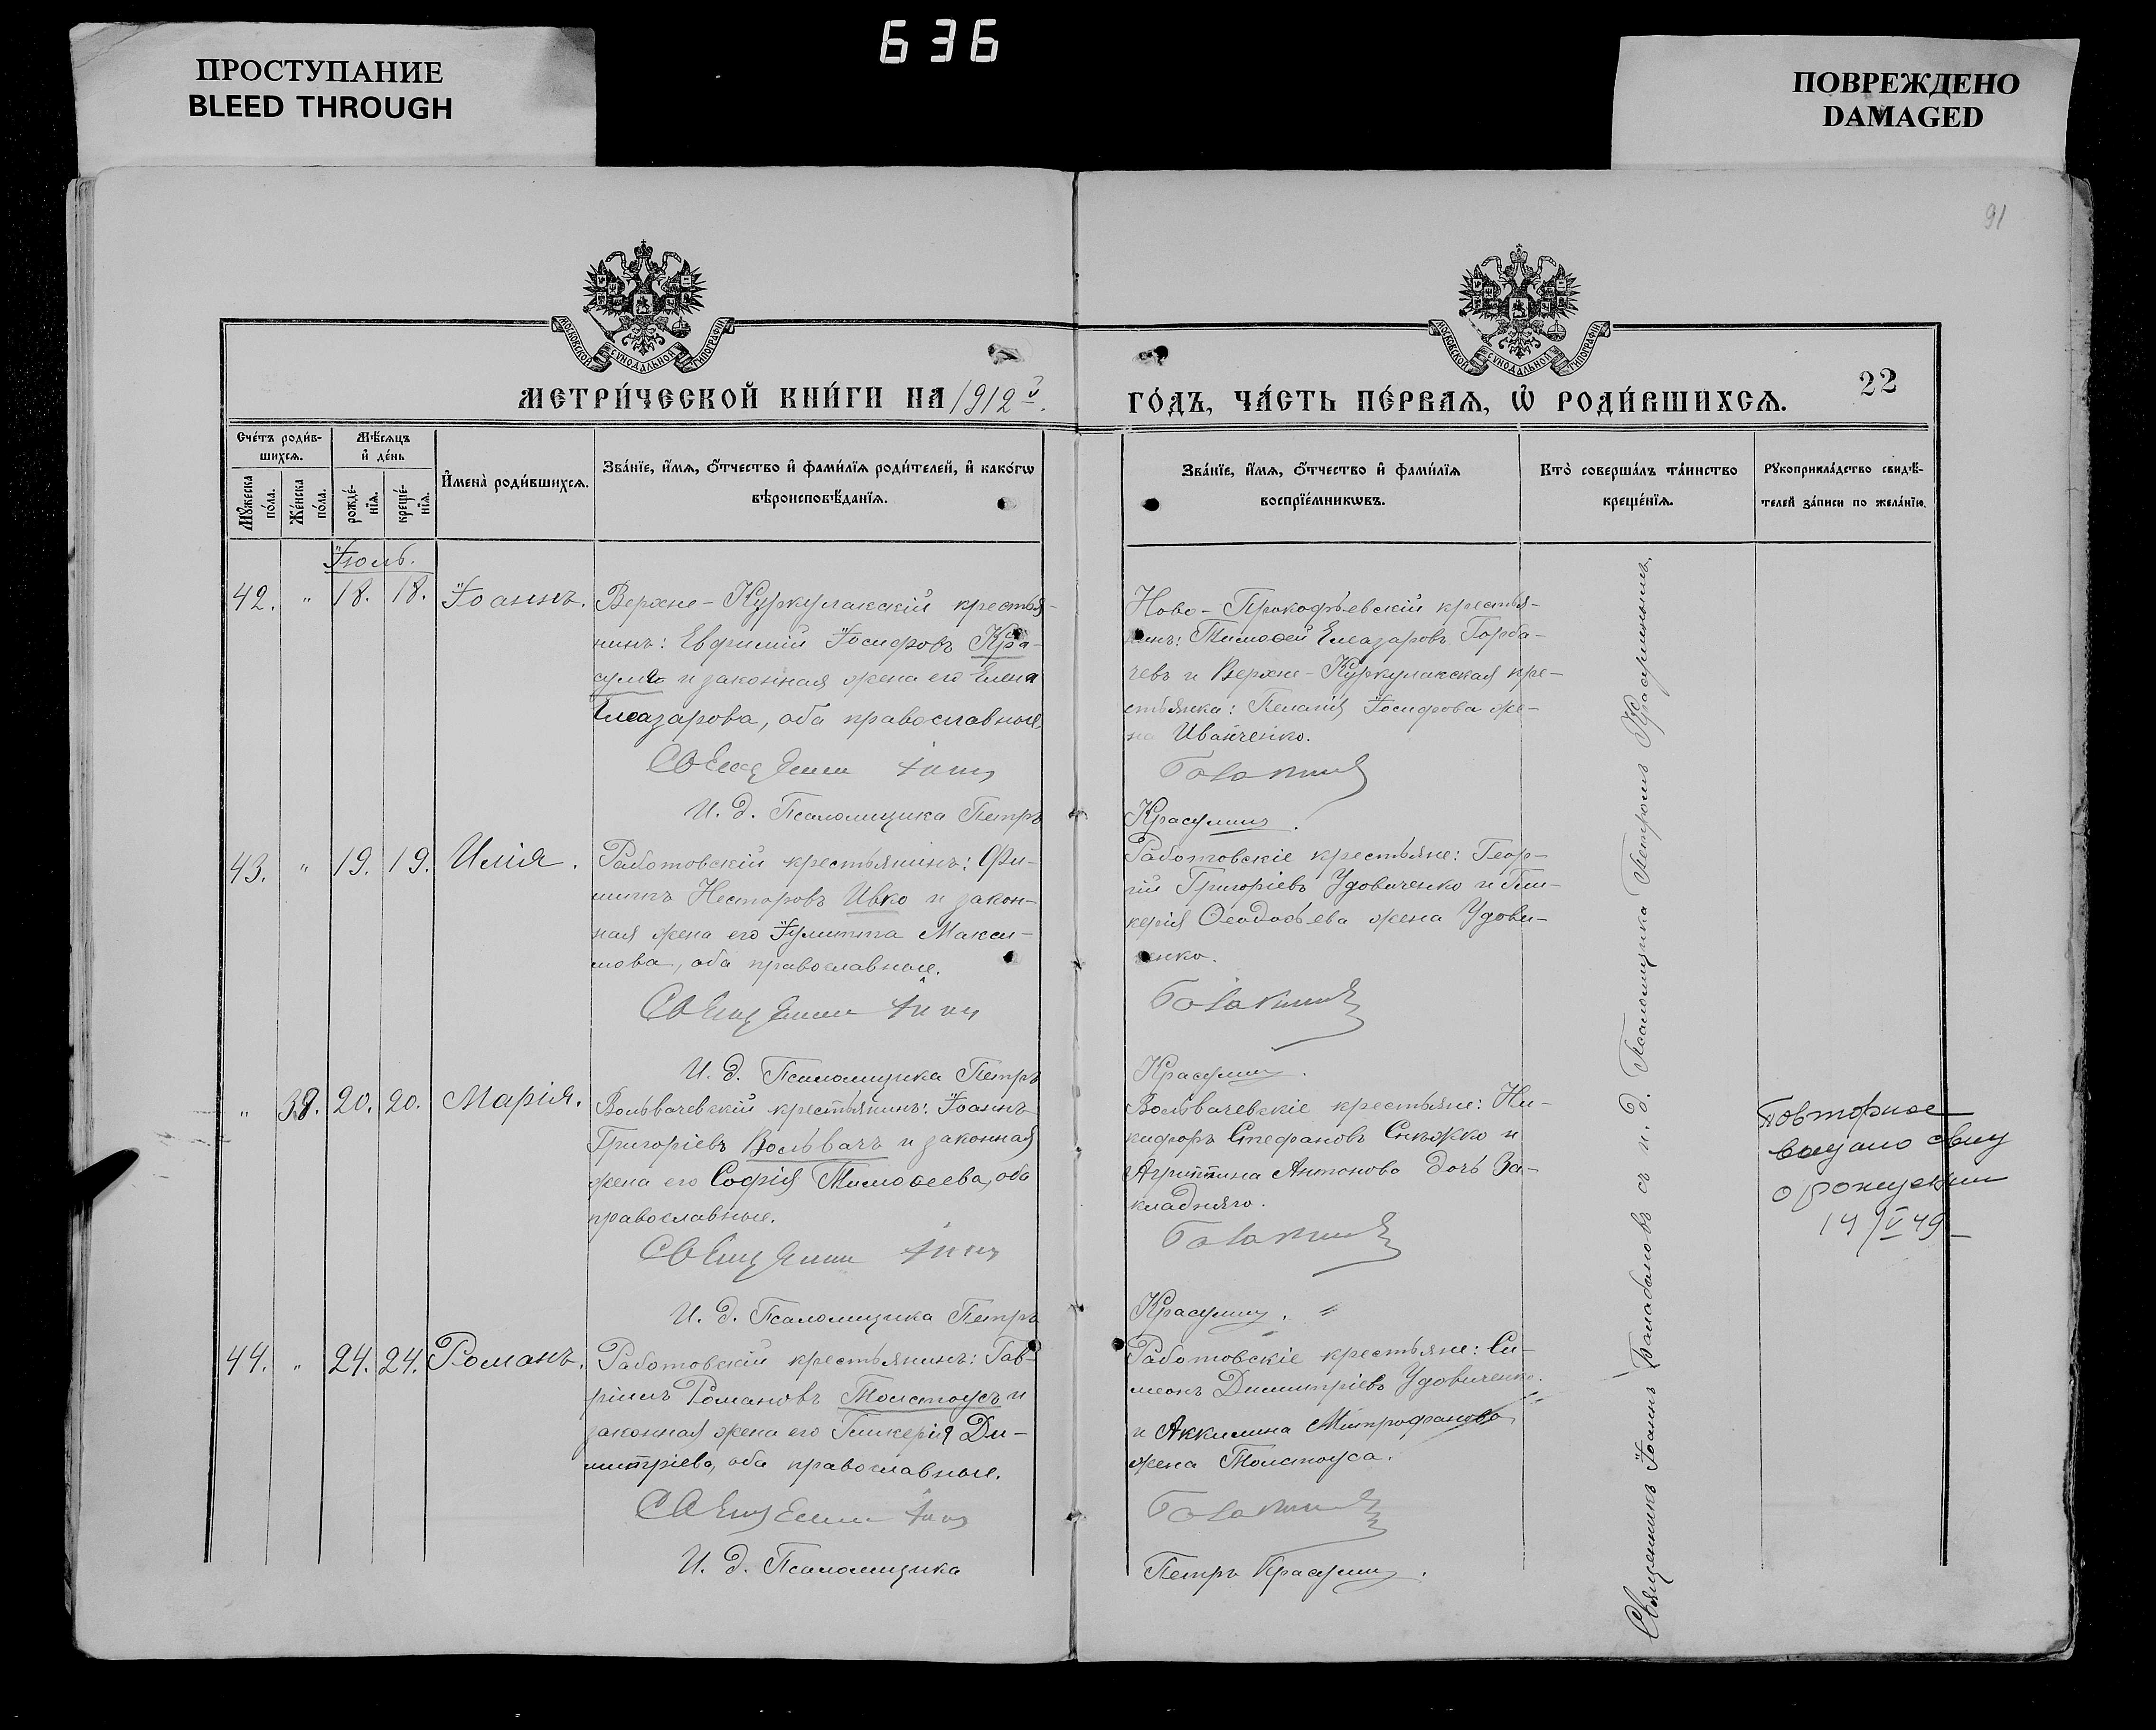 636
ПРОСТУПАНИЕ
BLEED THROUGH
ПОВРЕЖДЕНО
DAMAGED
91
МОСКОВСКОЙ СУНОДАЛЬНОЙ ТИПОГРАФІИ
МОСКОВСКОЙ СУНОДАЛЬНОЙ ТИПОГРАФІИ
МЕТРИ́ЧЕСКОЙ КНИ́ГИ НА 1912й.
ГО́ДЪ, ЧА́СТЬ ПЕ́РВАѦ, Ѡ҆ РОДИ́ВШИХСѦ.
22
Сче́тъ роди́в-
шихсѧ.
Мѣ́сѧцъ
и҆ де́нь
Мꙋ́жеска
по́ла.
Же́нска
по́ла.
рожде́-
нїѧ.
креще́-
нїѧ.
И҆мена̀ роди́вшихсѧ.
Зва́нїе, и҆́мѧ, ѻ҆́тчество и҆ фами́лїѧ роди́телей, и҆ како́гѡ
вѣроисповѣ́данїѧ.
Зва́нїе, и҆́мѧ, ѻ҆́тчество и҆ фами́лїѧ
воспрїе́мникѡвъ.
Кто̀ соверша́лъ та́инство
креще́нїѧ.
Рꙋкоприкла́дство свидѣ́-
телей за́писи по жела́нїю.
Іюль.
42. " 18. 18. Іоаннъ.
Верхне-Куркулакскій крестья-
нинъ: Евфимій Іосифовъ Кра-
суля и законная жена его Елена
Елеазарова, оба православные.
И. д. Псаломщика Петръ
Ново-Прокофьевскій крестья-
нинъ: Тимоѳей Елеазаровъ Горба-
чевъ и Верхне-Куркулакская кре-
стьянка: Пелагія Іосифова же-
на Иванченко.
Красулинъ.
43. " 19. 19. Илія.
Работовскій крестьянинъ: Фи-
липпъ Несторовъ Ивко и закон-
ная жена его Іулитта Макси-
мова, оба православные.
И. д. Псаломщика Петръ
Работовскіе крестьяне: Геор-
гій Григоріевъ Удовиченко и Гли-
керія Ѳеодосьева жена Удови-
ченко.
Красулинъ.
" 38. 20. 20. Марія.
Вольвачевскій крестьянинъ: Іоаннъ
Григоріевъ Вольвачъ и законная
жена его Софія Тимоѳеева, оба
православные.
И. д. Псаломщика Петръ
Вольвачевскіе крестьяне: Ни-
кифоръ Стефановъ Снѣжко и
Агриппина Антонова дочь За-
кладняго.
Красулинъ.
Повторное
выдано свид
о рождении
14/V 49
44. " 24. 24. Романъ.
Работовскій крестьянинъ: Гав-
ріилъ Романовъ Толстоусъ и
законная жена его Гликерія Ди-
митріева, оба православные.
И. д. Псаломщика
Работовскіе крестьяне: Си-
меонъ Димитріевъ Удовиченко
и Акилина Митрофанова
жена Толстоуса.
Петръ Красулинъ.
Священникъ Іоаннъ Балабановъ съ и. д. Псаломщика Петромъ Красулинымъ.